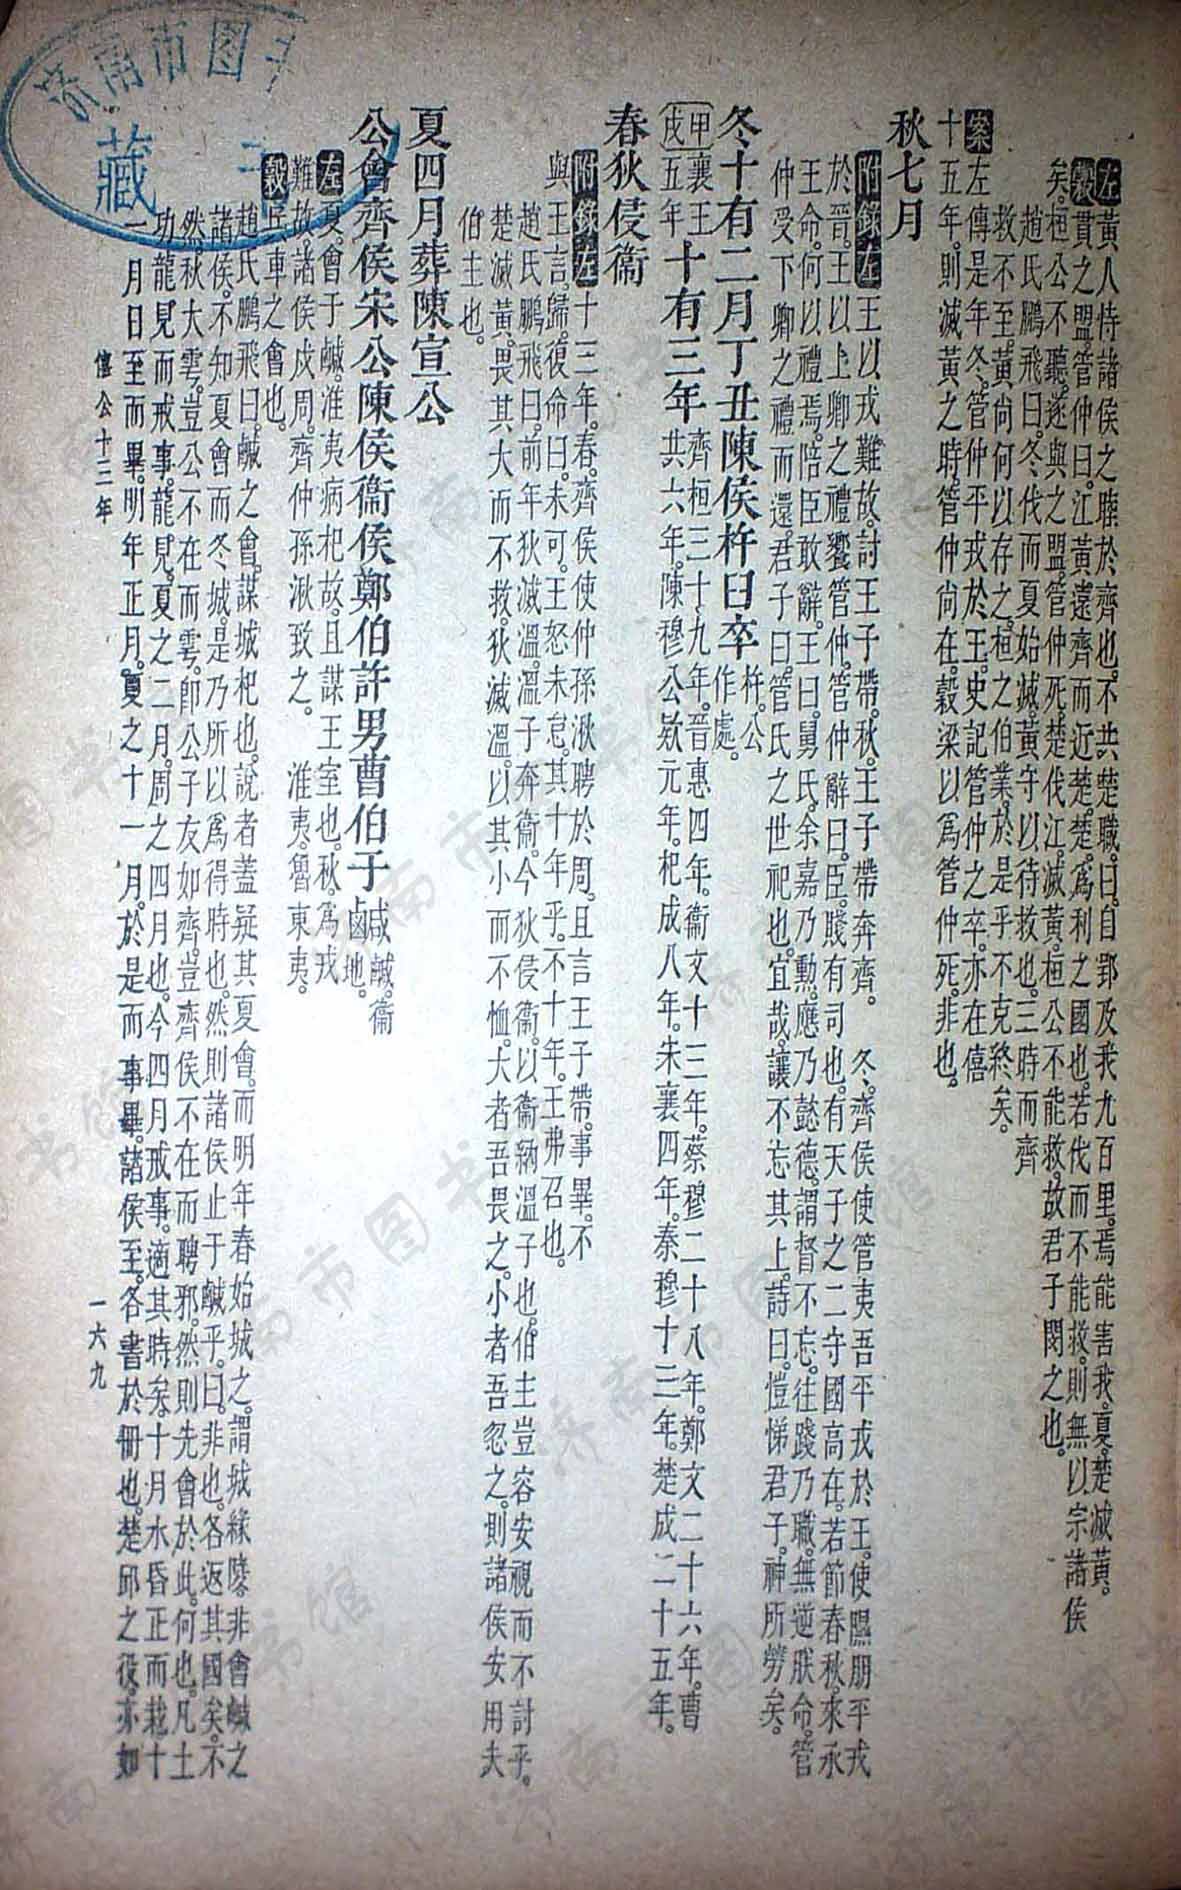 左黃人恃諸侯之睦於齊也。不共楚職。曰。自郢及我九百里。焉能害我。夏。楚滅黃。
穀貫之盟。管仲曰。江黃遠齊而近楚。楚。爲利之國也。若伐而不能救。則無以宗諸侯
矣。桓公不聽。遂與之盟。管仲死。楚伐江。滅黃。桓公不能救。故君子閔之也。
趙氏鵬飛曰。冬伐而夏始滅。黃守以待救也。三時而齊
救不至。黃尚何以存之。桓之伯業。於是乎不克終矣。
案左傳是年冬。管仲平戎於王。史記管仲之卒。亦在僖
十五年。則滅黃之時。管仲尚在。穀梁以爲管仲死。非也。
秋七月
附錄左王以戎難故。討王子帶。秋。王子帶奔齊。 冬。齊侯使管夷吾平戎於王。使隰朋平戎
於晉。王以上卿之禮饗管仲。管仲辭曰。臣。賤有司也。有天子之二守國高在。若節春秋。來承
王命。何以禮焉。陪臣敢辭。王曰。舅氏。余嘉乃勳。應乃懿德。謂督不忘。往踐乃職。無逆朕命。管
仲受下卿之禮而還。君子曰。管氏之世祀也。宜哉。讓不忘其上。詩曰。愷悌君子。神所勞矣。
冬十有二月丁丑陳侯杵臼卒杵。公
作處。
甲戌襄王五年十有三年齊桓三十九年。晉惠四年。衞文十三年。蔡穆二十八年。鄭文二十六年。曹
共六年。陳穆公款元年。杞成八年。宋襄四年。秦穆十三年。楚成二十五年。
春狄侵衞
附錄左十三年。春。齊侯使仲孫湫聘於周。且言王子帶。事畢。不
與王言。歸。復命曰。未可。王怒未怠。其十年乎。不十年。王弗召也。
趙氏鵬飛曰。前年狄滅溫。溫子奔衞。今狄侵衞。以衞納溫子也。伯主豈容安視而不討乎。
楚滅黃。畏其大而不救。狄滅溫。以其小而不恤。大者吾畏之。小者吾忽之。則諸侯安用夫
伯主也。
夏四月葬陳宣公
公會齊侯宋公陳侯衞侯鄭伯許男曹伯于鹹鹹。衞
地。
左夏。會于鹹。淮夷病杞故。且謀王室也。秋。爲戎
難故。諸侯戍周。齊仲孫湫致之。 淮夷。魯東夷。
穀兵車之會也。
趙氏鵬飛曰。鹹之會。謀城杞也。說者蓋疑其夏會。而明年春始城之。謂城緣陵。非會鹹之
諸侯。不知夏會而冬城。是乃所以爲得時也。然則諸侯止于鹹乎。曰。非也。各返其國矣。不
然。秋大雩。豈公不在而雩。卽公子友如齊。豈齊侯不在而聘邪。然則先會於此。何也。凡土
功。龍見而戒事。龍見。夏之二月。周之四月也。今四月戒事。適其時矣。十月水昏正而栽。十
一月日至而畢。明年正月。夏之十一月。於是而事畢。諸侯至。各書於冊也。楚邱之役。亦如
僖公十三年
一六九
济南市图
藏